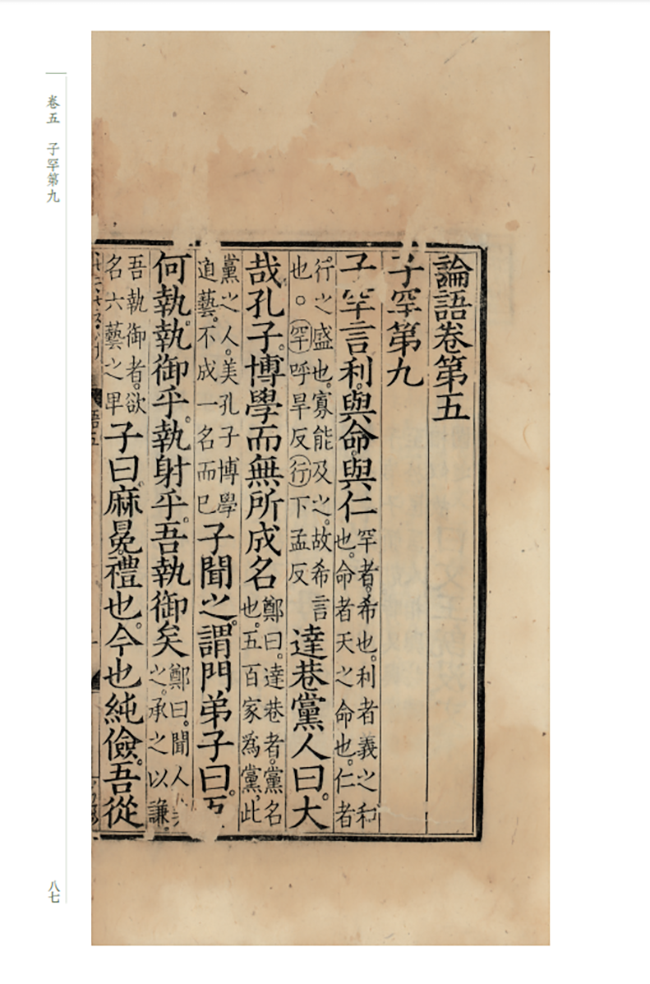 卷五　子罕第九
論語卷第五
子罕第九
子罕言利。與命。與仁
罕者。希也。利者義之和
也。命者天之命也。仁者
行之盛也。寡能及之。故希言
也。罕呼旱反行下孟反
達巷黨人曰。大
哉孔子。博學而無所成名
鄭曰。達巷者。黨名
也。五百家為黨。此
黨之人。美孔子博學
道藝。不成一名而已
子聞之。謂門弟子曰。
何執。執御乎。執射乎。吾執御矣
鄭曰。聞人
之。承之以謙
吾執御者。欲
名六藝之卑
子曰。麻冕禮也。今也純儉。吾從
語五
八七